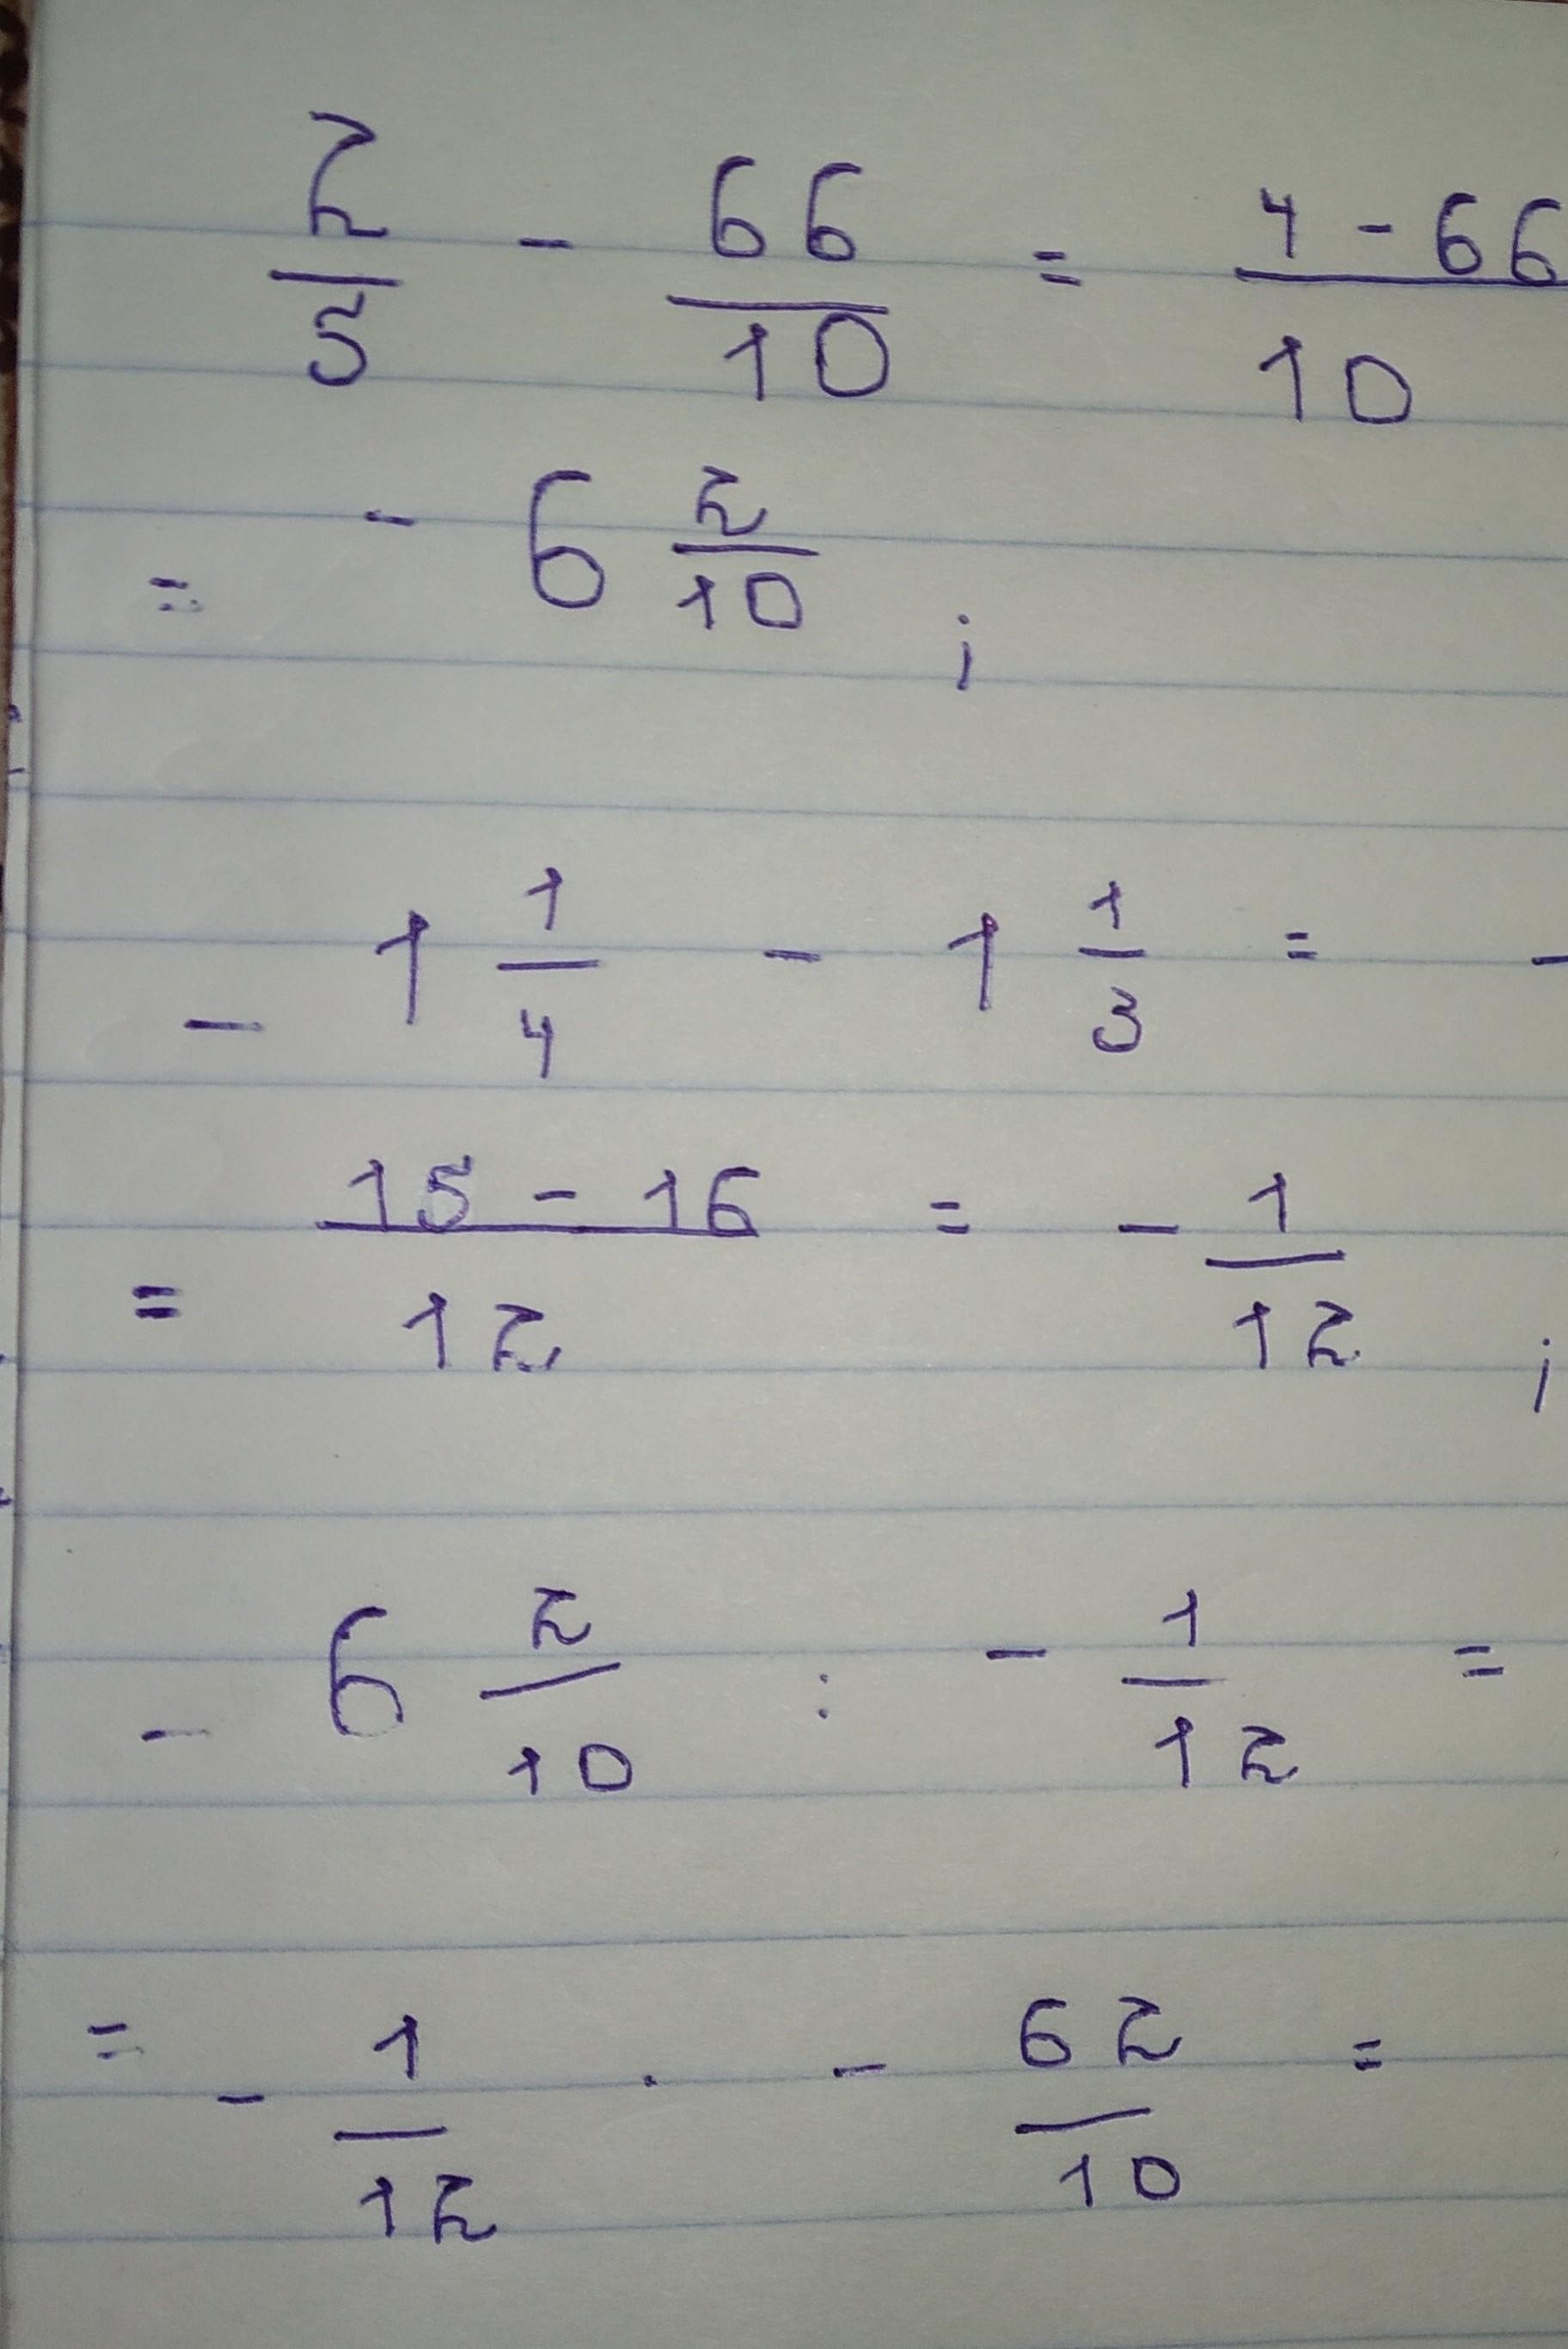 2/5 - 66/10 = 4 - 66/10
= - 6 2/10 ;
- 1 1/4 - 1 1/3 = -
= 15 - 16/12 = - 1/12 ;
- 6 2/10 : - 1/12 =
= - 1/12 · - 62/10 =